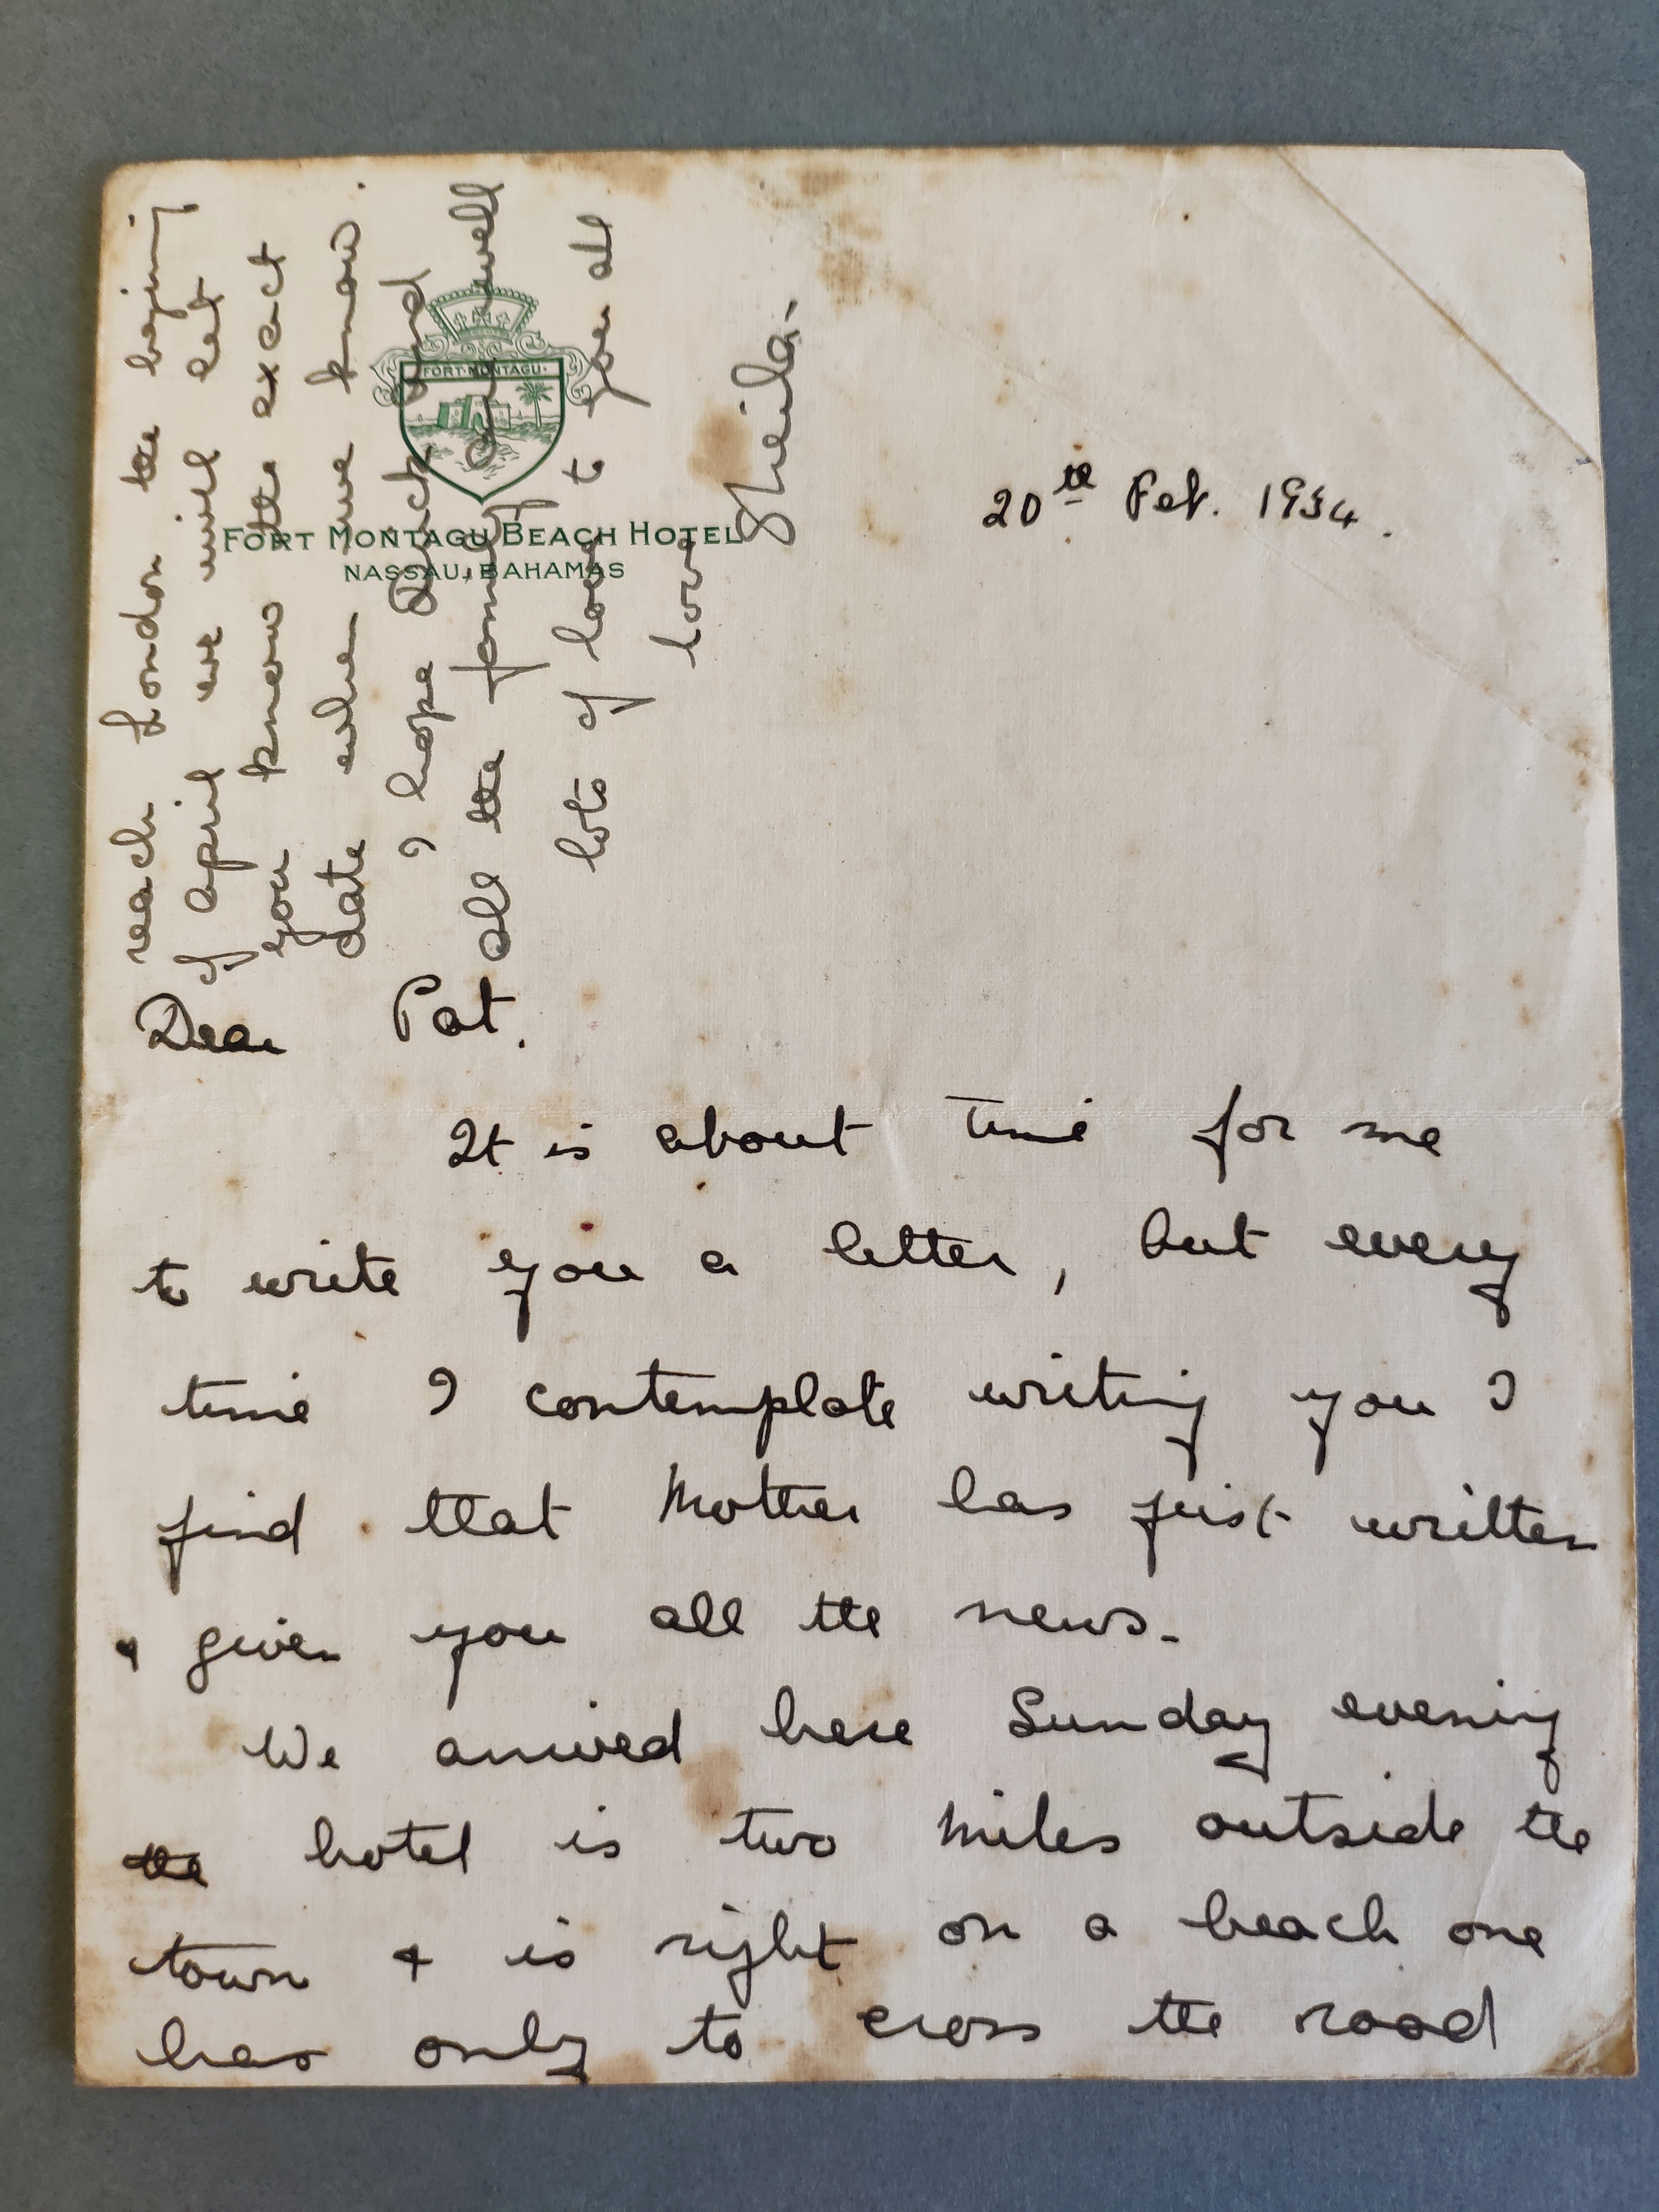 FORT MONTAGU
FORT MONTAGU BEACH HOTEL
NASSAU, BAHAMAS
20th Feb. 1934.
Dear Pat.
It is about time for me
to write you a letter, but every
time I contemplate writing you I
find that Mother has just written
& given you all the news.
We arrived here Sunday evening
the hotel is two miles outside the
town & is right on a beach one
has only to cross the road
reach London the begining
of April we will let
you know the exact
date when we know.
I hope and
all the family all well
lots of love to you all
love
Sheila.